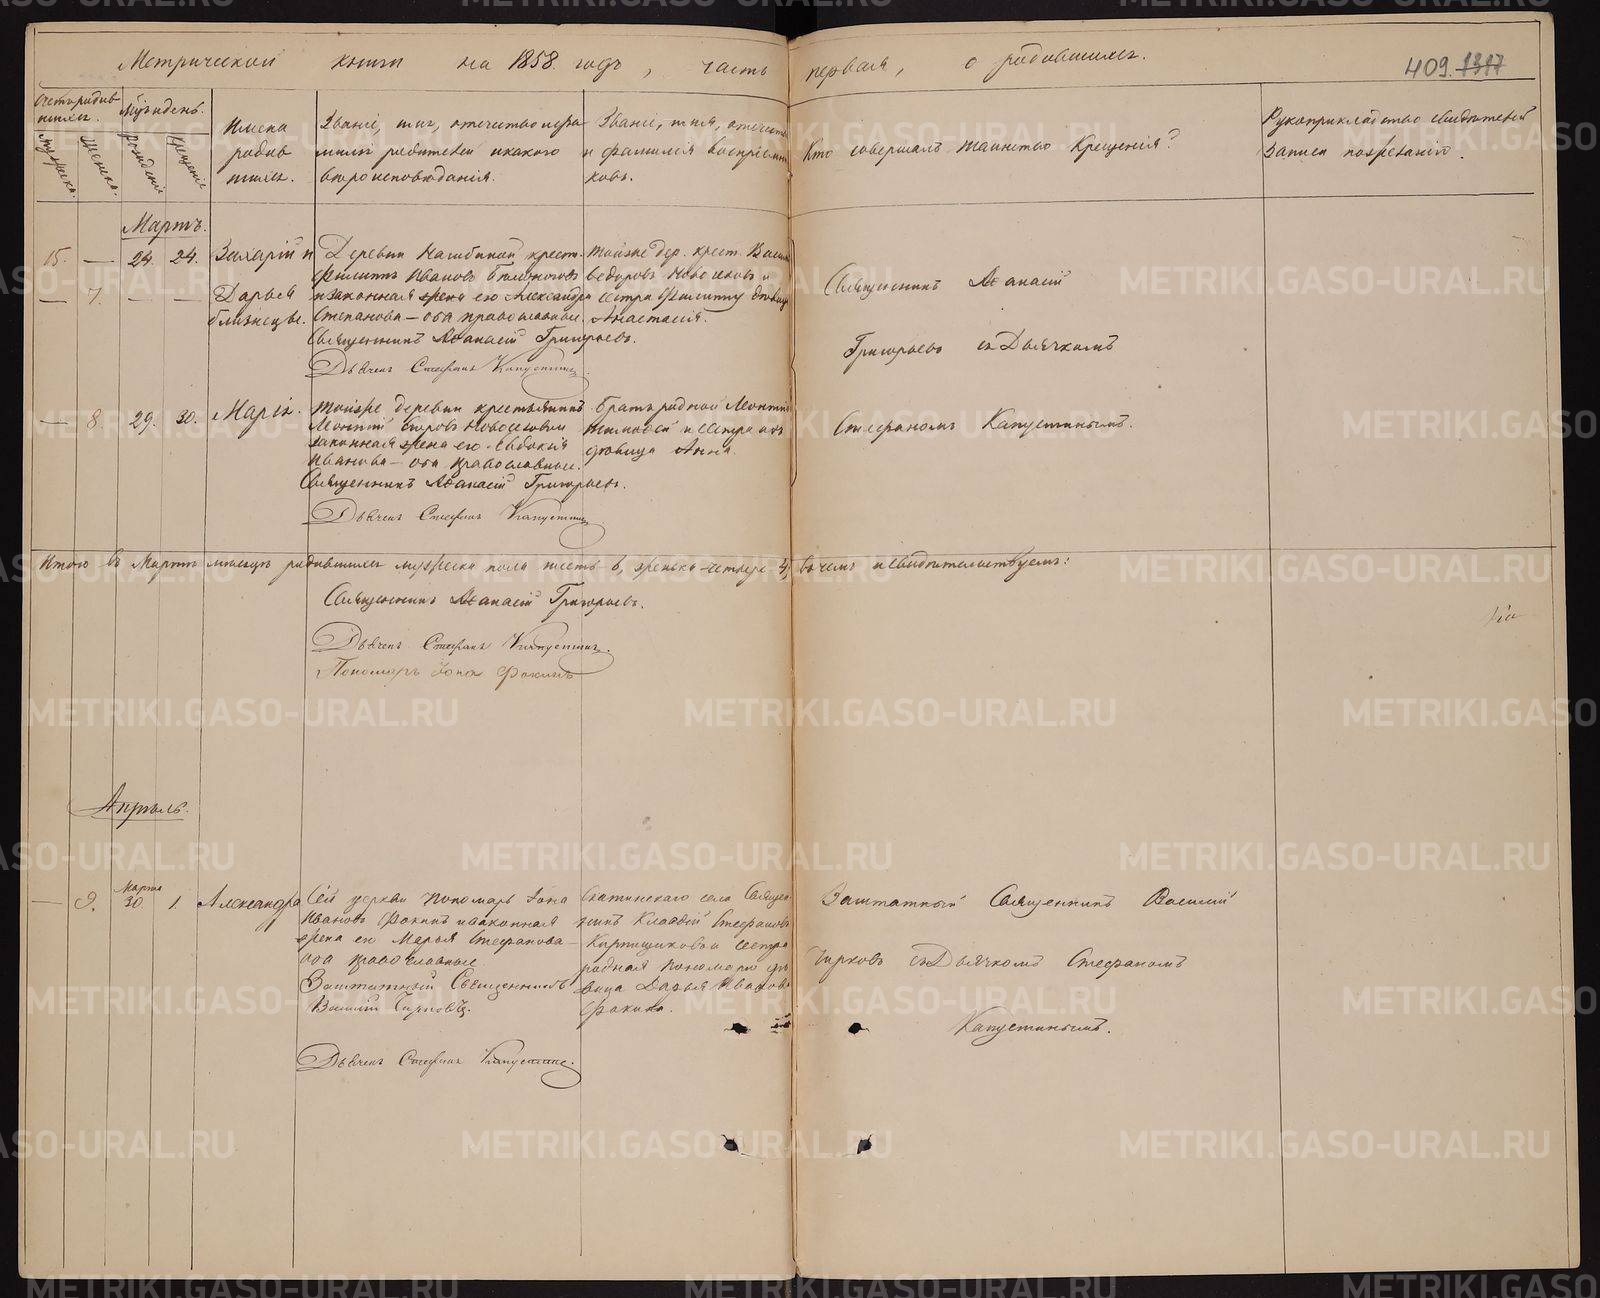 Метрической книги на 1858 годъ, часть первая, о родившихся.
409. 1317
Счетъ родив
шихся.
Мужеска.
Женска.
Мѣс. и день.
рожденія
крещенія
Имена
родив
шихся.
Званіе, имя, отечество и фа
милія родителей и какого
вѣроисповѣданія.
Званіе, имя, отечество
и фамилія воспріемни
ковъ.
Кто совершалъ таинство Крещенія?
Рукоприкладство свидѣтелей
записи по желанію.
Мартъ.
15. — 24. 24. Захарій и
— 7. — — Дарья
близнецы.
Деревни Нагибиной крест.
Филиппъ Ивановъ
и законная жена его Александра
Степанова — оба православные.
Священникъ Аѳанасій Григорьевъ.
Дьячекъ Стефанъ Капустинъ.
Тойже дер. крест. Васил
Ѳедоровъ Новоселовъ и
сестра Филиппу дѣвица
Анастасія.
Священникъ Аѳанасій
Григорьевъ съ Дьячкомъ
Стефаномъ Капустинымъ.
— 8. 29. 30. Марія.
Тойже деревни крестьянинъ
Леонтій Новоселовъ
законная жена его Евдокія
Иванова — оба православные.
Священникъ Аѳанасій Григорьевъ.
Дьячекъ Стефанъ Капустинъ
Братъ родной Леонтію
Тимофей и сестра его
дѣвица Анна.
Итого въ Мартѣ мѣсяцѣ родившихся мужеска пола шесть 6, женска четыре 4, въ чемъ и свидѣтельствуемъ:
Священникъ Аѳанасій Григорьевъ.
Дьячекъ Стефанъ Капустинъ.
Пономарь Іона Фокинъ
Апрѣль.
— 9. Марта
30 1. Александра
Сей церкви пономарь Іона
Ивановъ Фокинъ и законная
жена его Марья Стефанова —
оба православные
Заштатный Священникъ
Василій Чирковъ.
Дьячекъ Стефанъ Капустинъ.
Скатинскаго села Священ
никъ Клавдій Стефановъ
Кирпищиковъ и сестра
родная пономарю дѣ
вица Дарья Иванова
Фокина.
Заштатный Священникъ Василій
Чирковъ съ Дьячкомъ Стефаномъ
Капустинымъ.
METRIKI.GASO-URAL.RU